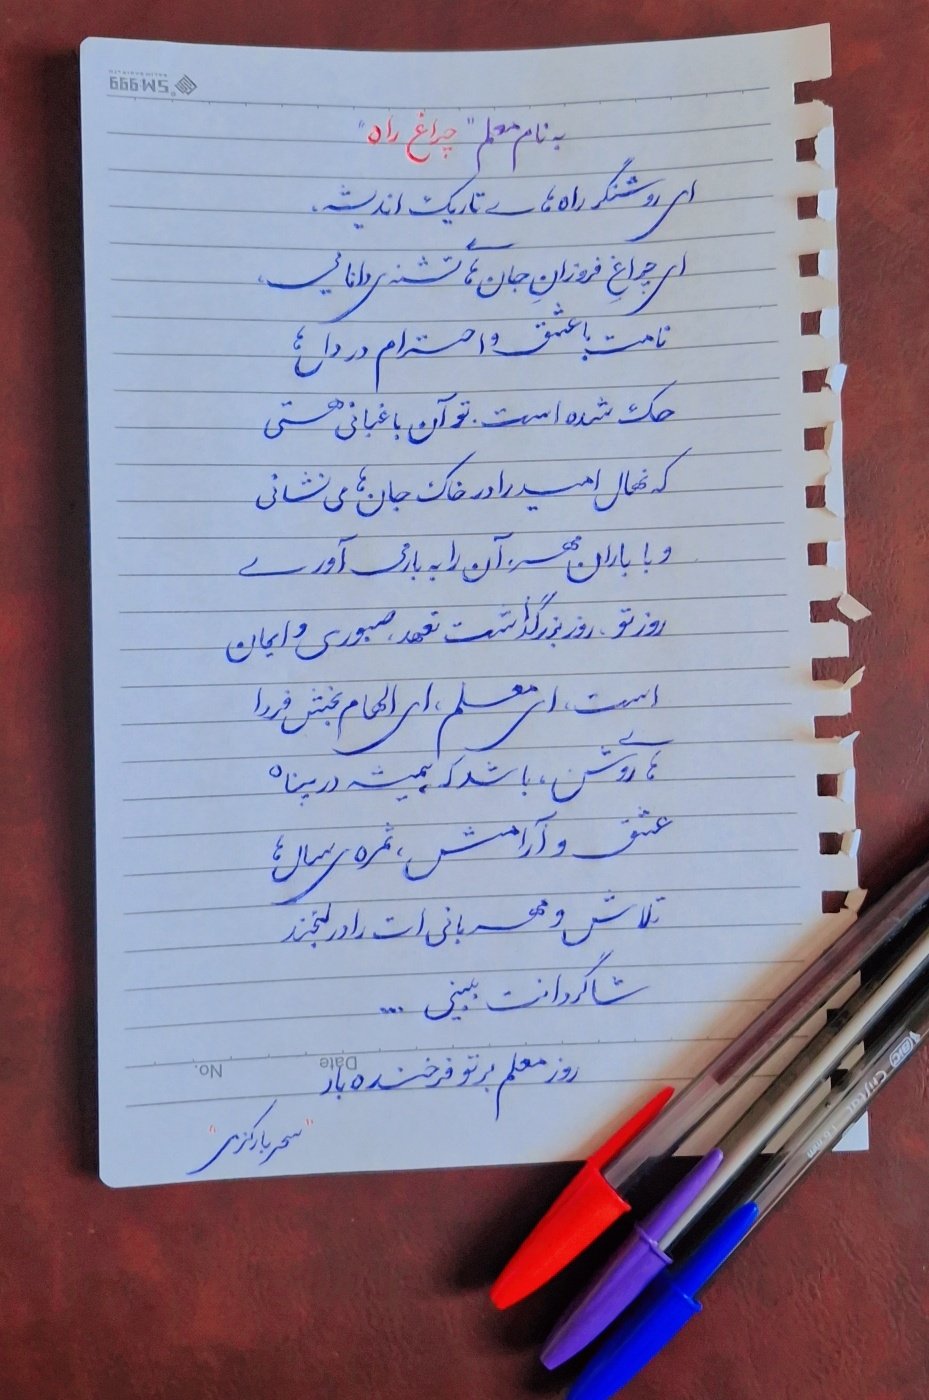 SM.999
به نام معلم "چراغ راه"
ای روشنگر راه های تاریک اندیشه،
ای چراغِ فروزانِ جان های تشنه‌ی دانایی،
نامت با عشق و احترام در دل ها
حک شده است. تو آن باغبانی هستی
که نهال امید را در خاک جان ها می نشانی
و با باران مهر، آن را به بار می آوری
روز تو، روز بزرگداشت تعهد، صبوری و ایمان
است، ای معلم، ای الهام بخش فردا
های روشن، باشد که همیشه در پناه
عشق و آرامش، ثمره ی سال ها
تلاش و مهربانی ات را در لبخند
شاگردانت ببینی ...
Date No.
روز معلم بر تو فرخنده باد
"سحر بارکزی"
BIC Cristal